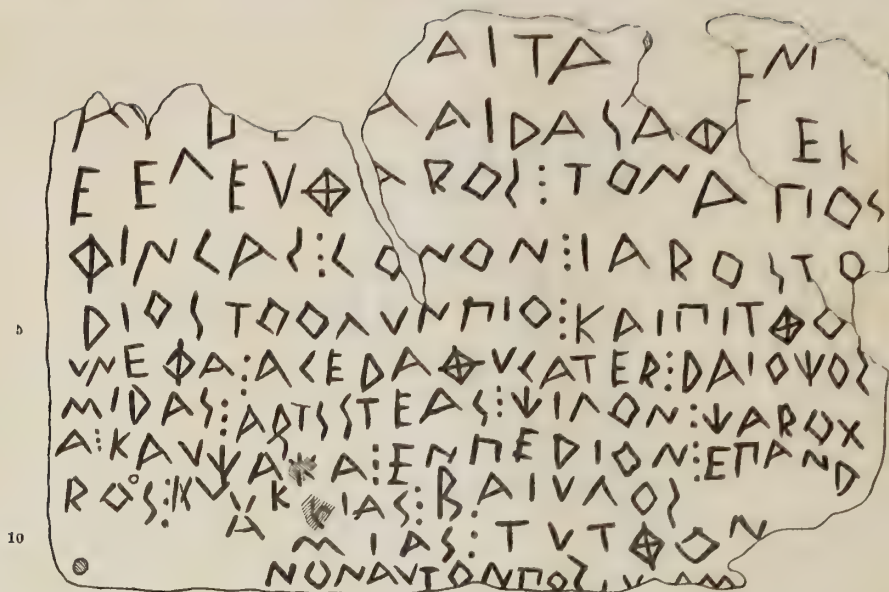 ΑΙΤΑ ΕΝΙ
Α ΑΙΔΑΣΑΘ ΕΚ
ΕΕΛΕΥΘΑΡΟΣ⋮ΤΟΝΑΠΙΟΣ
ΘΙΝΓΑΣ⋮ΓΟΝΟΝ⋮ΙΑΡΟΣΤΟ
5 ΔΙΟΣΤΟΟΛΥΝΠΙΟ⋮ΚΑΙΠΙΤΘΟ
ΥΝΕΘΑ⋮ΑΓΕΔΑΘΥΓΑΤΕΡ⋮ΔΑΙΟΨΟΣ
ΜΙΔΑΣ⋮ΑΡΙΣΣΤΕΑΣ⋮ΨΙΛΟΝ⋮ΨΑΡΟΧ
Α⋮ΚΑΥΨΑ Α⋮ΕΝΠΕΔΙΟΝ⋮ΕΠΑΝΔ
ΡΟΣ⋮Κ ΙΑΣ⋮ΒΑΙΥΛΟΣ
10 ΜΙΑΣ⋮ΤΥΤΘΟΝ
ΝΟΝΑΥΤΟΝΠΟΣ